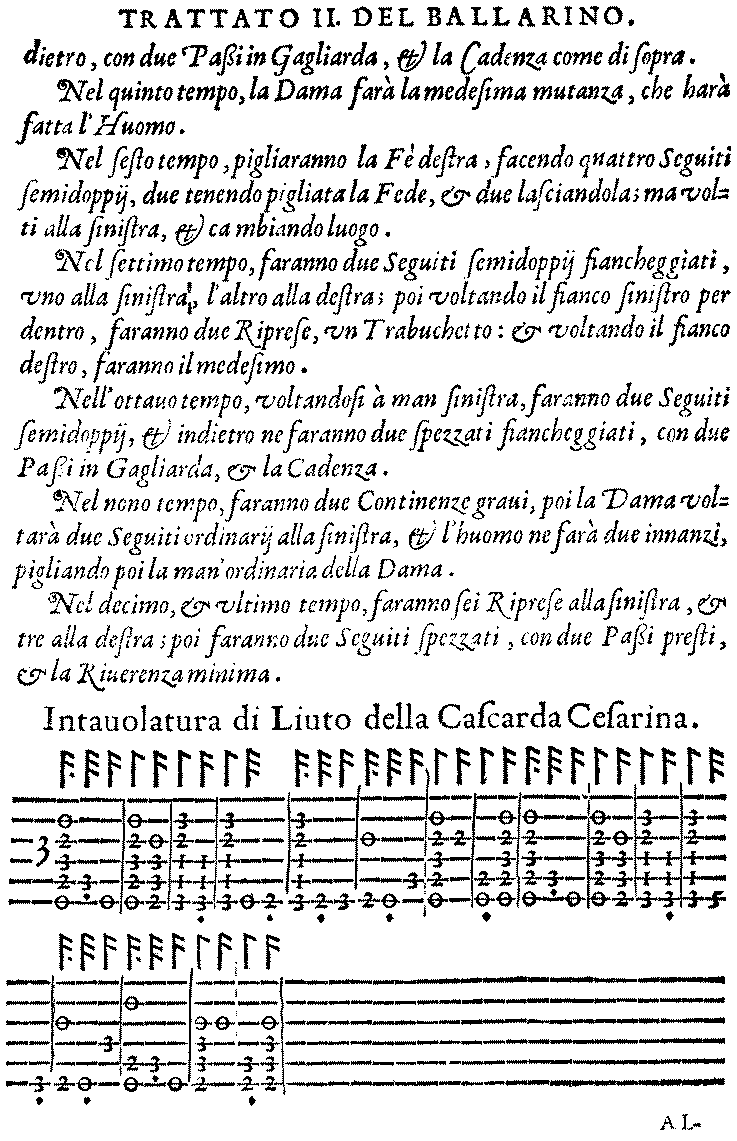 TRATTATO II. DEL BALLARINO.
dietro, con due Paſſi in Gagliarda, & la Cadenza come di ſopra.
Nel quinto tempo, la Dama farà la medeſima mutanza, che harà
fatta l'Huomo.
Nel ſeſto tempo, pigliaranno la Fè deſtra; facendo quattro Seguiti
ſemidoppij, due tenendo pigliata la Fede, & due laſciandola; ma vol=
ti alla ſiniſtra, & ca mbiando luogo.
Nel ſettimo tempo, faranno due Seguiti ſemidoppij fiancheggiati,
vno alla ſiniſtra, l'altro alla deſtra; poi voltando il fianco ſiniſtro per
dentro, faranno due Ripreſe, vn Trabuchetto: & voltando il fianco
deſtro, faranno il medeſimo.
Nell'ottauo tempo, voltandoſi à man ſiniſtra, faranno due Seguiti
ſemidoppij, & indietro ne faranno due ſpezzati fiancheggiati, con due
Paſſi in Gagliarda, & la Cadenza.
Nel nono tempo, faranno due Continenze graui, poi la Dama vol=
tarà due Seguiti ordinarij alla ſiniſtra, & l'huomo ne farà due innanzi,
pigliando poi la man'ordinaria della Dama.
Nel decimo, & vltimo tempo, faranno ſei Ripreſe alla ſiniſtra, &
tre alla deſtra; poi faranno due Seguiti ſpezzati, con due Paſſi preſti,
& la Riuerenza minima.
Intauolatura di Liuto della Caſcarda Ceſarina.
AL-